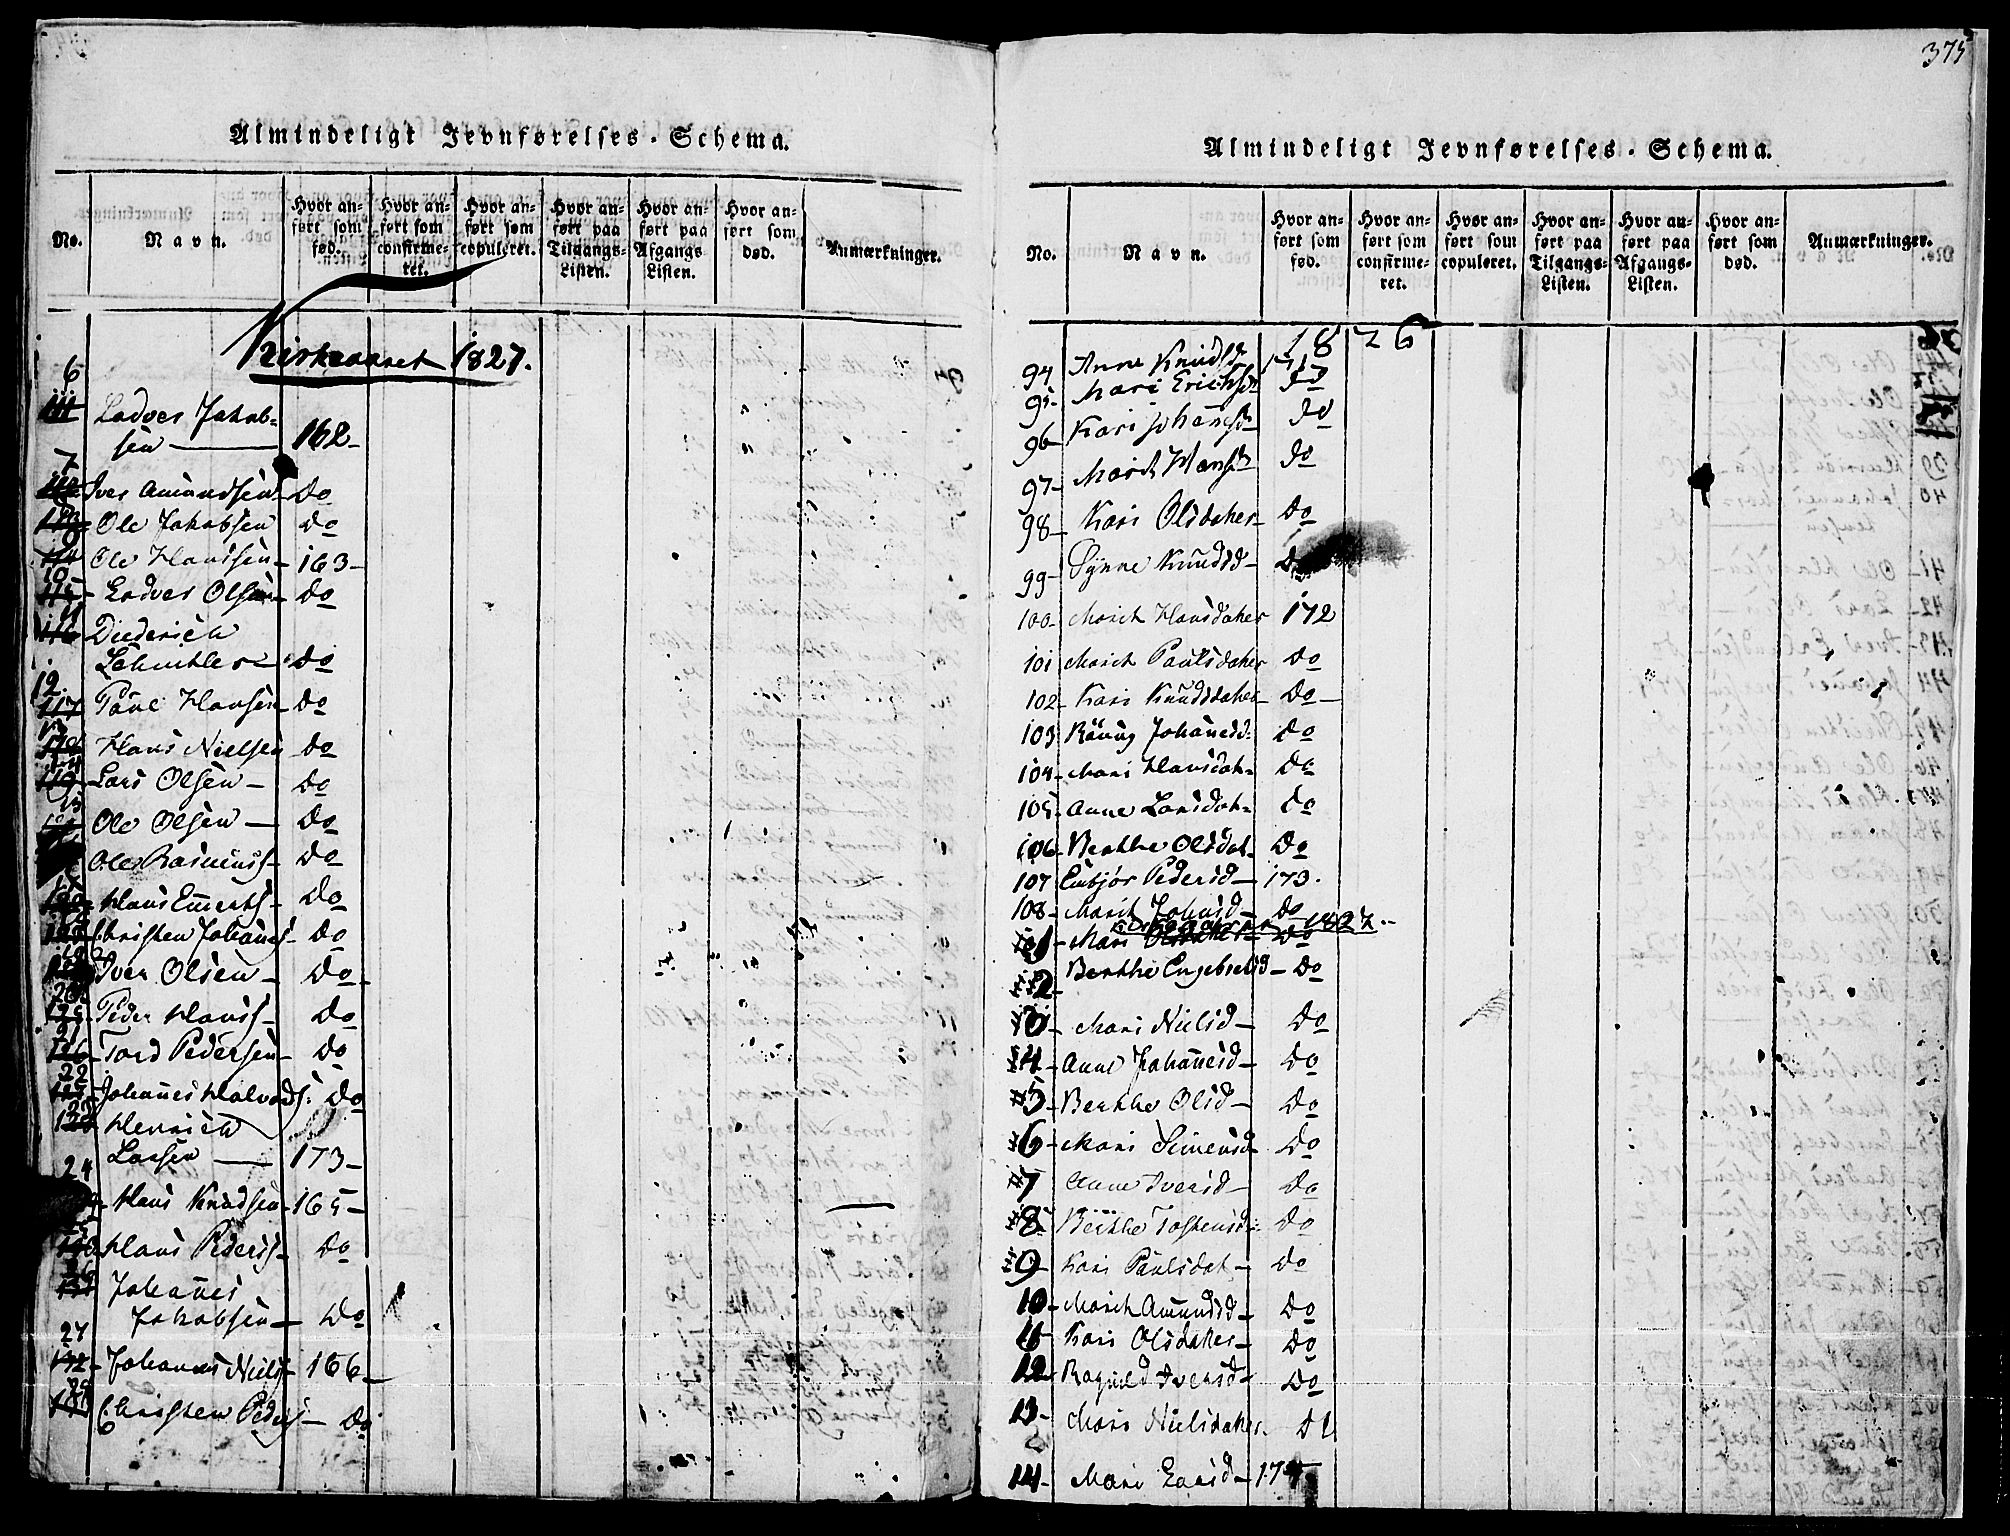 375
Almindeligt Jevnførelses-Schema.
No.
Navn.
Hvor an-
ført som
fød.
Hvor an-
ført som
confirme-
ret.
Hvor an-
ført som
copuleret.
Hvor an-
ført paa
Tilgangs-
Listen.
Hvor an-
ført paa
Afgangs
Listen.
Hvor an-
ført som
død.
Anmærkninger.
Kirkeaaret 1827.
6
111 Ladver Jakob-
sen — 162
7
112 Iver Amundsen Do
Ole Jakobsen Do
114 Ole Hanssen 163
10
115 Ladver Olsen Do
11
116 Diederich
Do
12
117 Paul Hansen Do
13
118 Hans Nielsen Do
14
119 Lars Olsen Do
15
Ole Olsen Do
Ole Rasmuss Do
Hans Do
Christen Johans Do
Iver Olsen Do
20
125 Peder Hanss Do
21
126 Tord Pedersen Do
22
127 Johannes Halvords: Do
23
128 Henrich
Larsen — 173
24
Hans Knudsen 165
25
Hans Peders Do
26
131 Johannes
Jakobsen Do
27
132 Johannes Niels 166
28
Christen Peders Do
Almindeligt Jevnførelses-Schema.
No.
Navn.
Hvor an-
ført som
fød.
Hvor an-
ført som
confirme-
ret.
Hvor an-
ført som
copuleret.
Hvor an-
ført paa
Tilgangs-
Listen.
Hvor an-
ført paa
Afgangs-
Listen.
Hvor an-
ført som
død.
Anmærkninger.
1826
94 Anne Knudsd 171
95 Mari Erichsd Do
96 Kari Johansd Do
97 Marit Hansd Do
98 Kari Olsdater Do
99 Synne Knudsd Do
100 Marit Hansdater 172
101 Marit Paulsdater Do
102 Kari Knudsdater Do
103 Rønnug Johannesd: Do
104 Mari Hansdat Do
105 Anne Larsdat Do
106 Berthe Olsdat Do
107 Embjør Pedersd 173.
108 Marit Johnsd Do
1827.
1 Mari Do
2 Berthe Engebretsd Do
3 Mari Nielsd Do
4 Anne Johannesd Do
5 Berthe Olsd Do
6 Mari Simensd Do
7 Anne Iversd Do
8 Berthe Tostensd: Do
9 Kari Paulsdat Do
10 Marit Amundsd Do
11 Kari Olsdater Do
12 Ragnild Iversd Do
13 Mari Nielsdater. Do
14 Mari Larsd 174